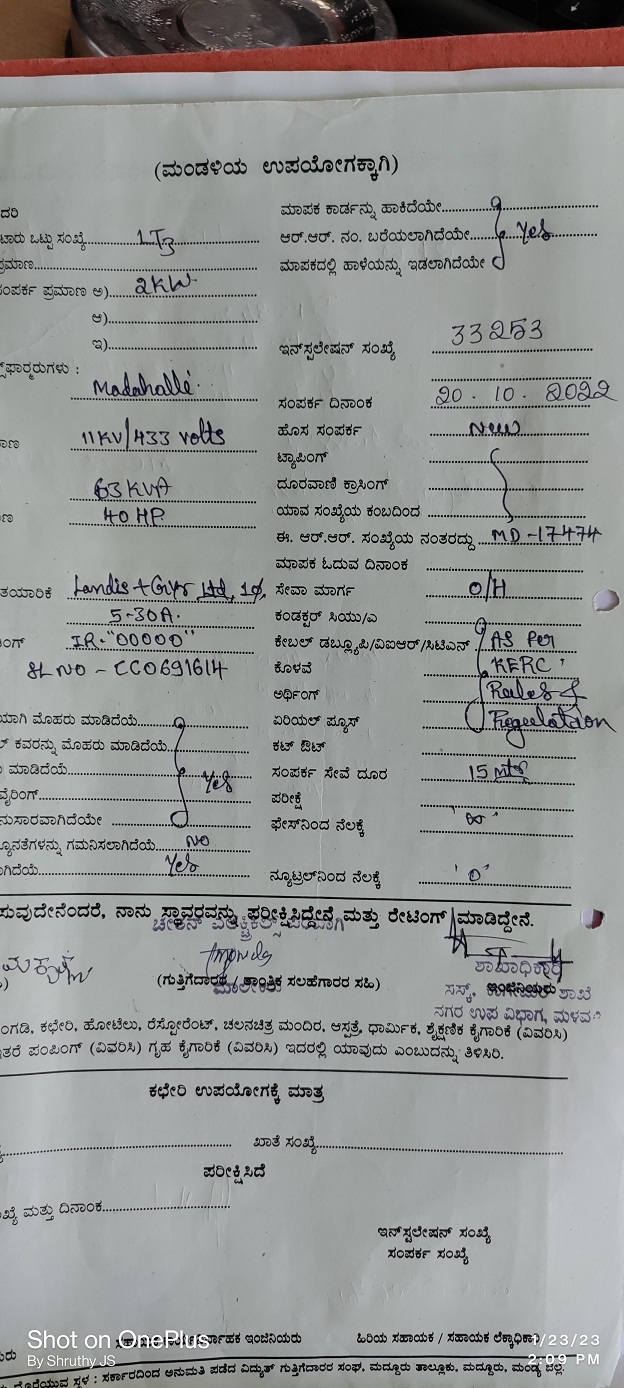 (ಮಂಡಳಿಯ ಉಪಯೋಗಕ್ಕಾಗಿ)
ದರಿ
ಮಾಪಕ ಕಾರ್ಡನ್ನು ಹಾಕಿದೆಯೇ
ಟಾರು ಒಟ್ಟು ಸಂಖ್ಯೆ 1T3
ಆರ್.ಆರ್. ನಂ. ಬರೆಯಲಾಗಿದೆಯೇ Yes
ಪ್ರಮಾಣ
ಮಾಪಕದಲ್ಲಿ ಹಾಳೆಯನ್ನು ಇಡಲಾಗಿದೆಯೇ
ಸಂಪರ್ಕ ಪ್ರಮಾಣ ಅ) 2KW
ಆ)
ಇ)
ಇನ್‌ಸ್ಟಲೇಷನ್ ಸಂಖ್ಯೆ 33253
ಸ್‌ಫಾರ್ಮರುಗಳು :
Madahalli
ಸಂಪರ್ಕ ದಿನಾಂಕ 20.10.2022
ಾಣ 11KV/433 volts
ಹೊಸ ಸಂಪರ್ಕ New
ಟ್ಯಾಪಿಂಗ್
63 KVA
ದೂರವಾಣಿ ಕ್ರಾಸಿಂಗ್
ಣ 40 HP
ಯಾವ ಸಂಖ್ಯೆಯ ಕಂಬದಿಂದ
ಈ. ಆರ್.ಆರ್. ಸಂಖ್ಯೆಯ ನಂತರದ್ದು MD-17474
ಮಾಪಕ ಓದುವ ದಿನಾಂಕ
ತಯಾರಿಕೆ Landis + Gyr Ltd, 1φ,
ಸೇವಾ ಮಾರ್ಗ O/H
5-30A.
ಕಂಡಕ್ಟರ್ ಸಿಯು/ಎ
ಿಂಗ್ IR-"00000"
ಕೇಬಲ್ ಡಬ್ಲ್ಯೂಪಿ/ವಿಐಆರ್/ಸಿಟಿಎಸ್ As Per
SL NO - CC0691614
ಕೊಳವೆ KERC
ಅರ್ಥಿಂಗ್ Rules &
ಯಾಗಿ ಮೊಹರು ಮಾಡಿದೆಯೆ
ಏರಿಯಲ್ ಫ್ಯೂಸ್ Regulation
ಲ್ ಕವರನ್ನು ಮೊಹರು ಮಾಡಿದೆಯೆ
ಕಟ್ ಔಟ್
ು ಮಾಡಿದೆಯೆ Yes
ಸಂಪರ್ಕ ಸೇವೆ ದೂರ 15 mts
ವೈರಿಂಗ್
ಪರೀಕ್ಷೆ
ನುಸಾರವಾಗಿದೆಯೇ
ಫೇಸ್‌ನಿಂದ ನೆಲಕ್ಕೆ '∞'
್ಯೂನತೆಗಳನ್ನು ಗಮನಿಸಲಾಗಿದೆಯೆ NO
ಾಗಿದೆಯೆ Yes
ನ್ಯೂಟ್ರಲ್‌ನಿಂದ ನೆಲಕ್ಕೆ '0'
ಸುವುದೇನೆಂದರೆ, ನಾನು ಸ್ಥಾವರವನ್ನು ಪರೀಕ್ಷಿಸಿದ್ದೇನೆ ಮತ್ತು ರೇಟಿಂಗ್ ಮಾಡಿದ್ದೇನೆ.
ಶಾಖಾಧಿಕಾರಿ
(ಗುತ್ತಿಗೆದಾರರ / ತಾಂತ್ರಿಕ ಸಲಹೆಗಾರರ ಸಹಿ)
ಇಂಜಿನಿಯರು ಶಾಖೆ
ನಗರ ಉಪ ವಿಭಾಗ, ಮಳವಳ್ಳಿ
ಂಗಡಿ, ಕಛೇರಿ, ಹೋಟೆಲು, ರೆಸ್ಟೋರೆಂಟ್, ಚಲನಚಿತ್ರ ಮಂದಿರ, ಆಸ್ಪತ್ರೆ, ಧಾರ್ಮಿಕ, ಶೈಕ್ಷಣಿಕ ಕೈಗಾರಿಕೆ (ವಿವರಿಸಿ)
ಇತರೆ ಪಂಪಿಂಗ್ (ವಿವರಿಸಿ) ಗೃಹ ಕೈಗಾರಿಕೆ (ವಿವರಿಸಿ) ಇದರಲ್ಲಿ ಯಾವುದು ಎಂಬುದನ್ನು ತಿಳಿಸಿರಿ.
ಕಛೇರಿ ಉಪಯೋಗಕ್ಕೆ ಮಾತ್ರ
ಖಾತೆ ಸಂಖ್ಯೆ
ಪರೀಕ್ಷಿಸಿದೆ
ಖ್ಯೆ ಮತ್ತು ದಿನಾಂಕ
ಇನ್‌ಸ್ಟಲೇಷನ್ ಸಂಖ್ಯೆ
ಸಂಪರ್ಕ ಸಂಖ್ಯೆ
Shot on OnePlus
By Shruthy JS
ಇಂಜಿನಿಯರು
ಹಿರಿಯ ಸಹಾಯಕ / ಸಹಾಯಕ ಲೆಕ್ಕಾಧಿಕಾರಿ
1/23/23
2:09 PM
ದೊರೆಯುವ ಸ್ಥಳ : ಸರ್ಕಾರದಿಂದ ಅನುಮತಿ ಪಡೆದ ವಿದ್ಯುತ್ ಗುತ್ತಿಗೆದಾರರ ಸಂಘ, ಮದ್ದೂರು ತಾಲ್ಲೂಕು, ಮದ್ದೂರು, ಮಂಡ್ಯ ಜಿಲ್ಲೆ.